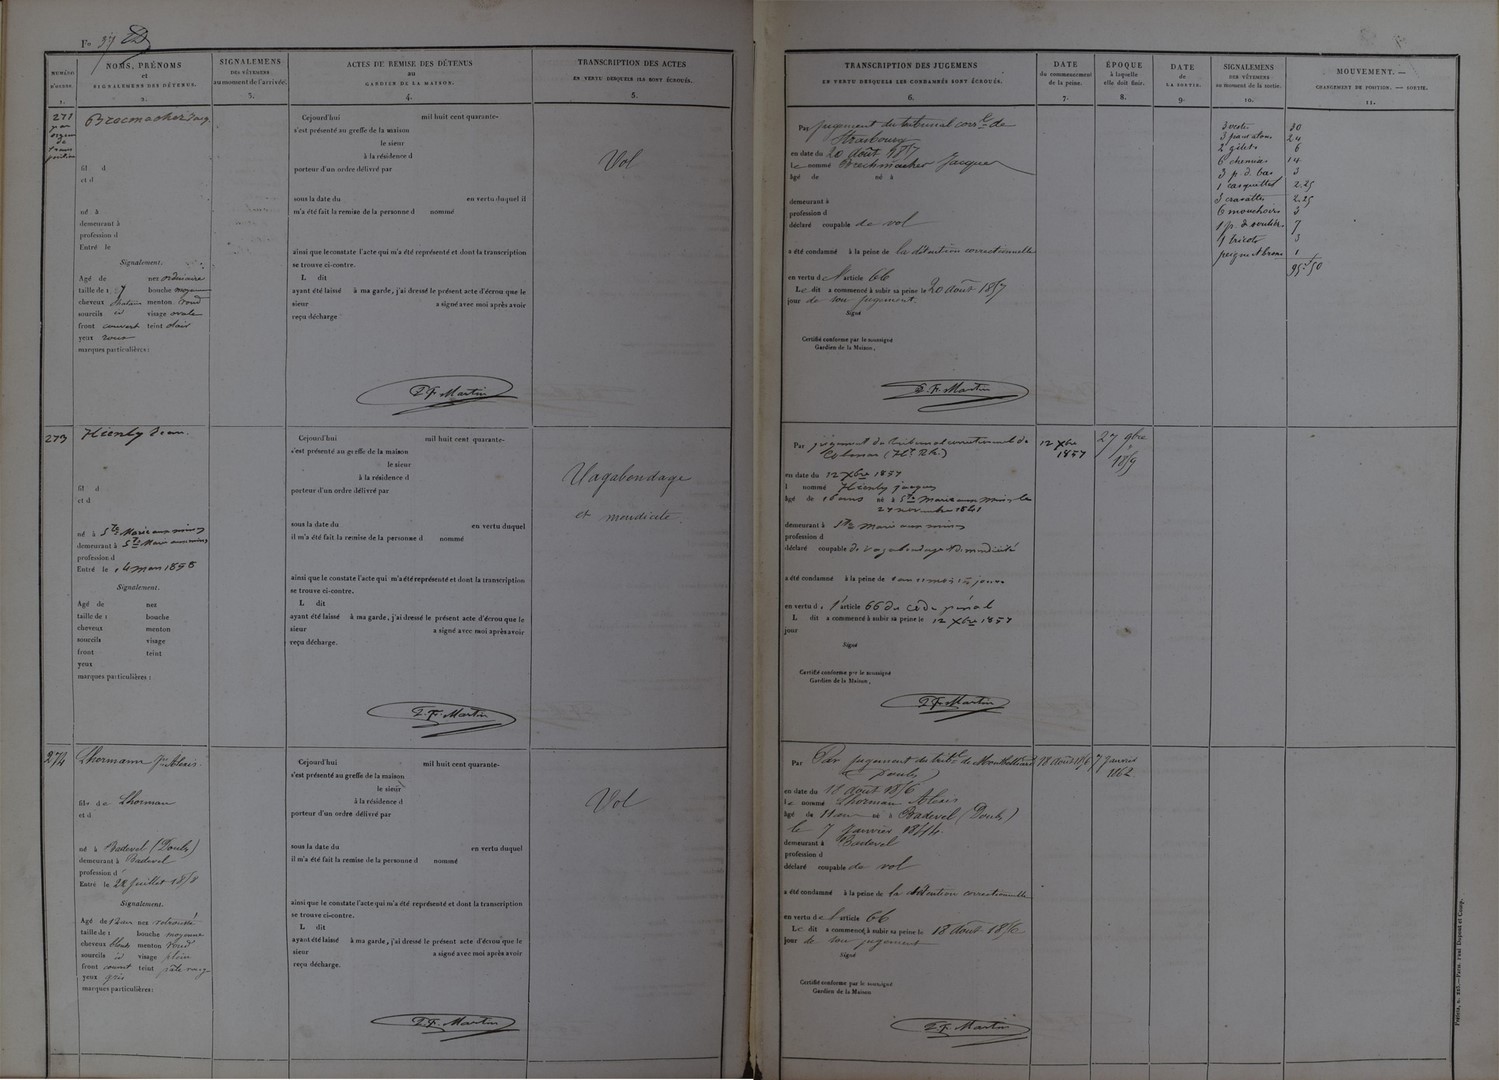 F° 37
NUMÉRO
D'ORDRE
1.
NOMS, PRÉNOMS
et
SIGNALEMENS DES DÉTENUS.
2.
SIGNALEMENS
DES VÊTEMENS
au moment de l'arrivée.
3.
ACTES DE REMISE DES DÉTENUS
au
GARDIEN DE LA MAISON.
4.
TRANSCRIPTION DES ACTES
EN VERTU DESQUELS ILS SONT ÉCROUÉS.
5.
TRANSCRIPTION DES JUGEMENS
EN VERTU DESQUELS LES CONDAMNÉS SONT ÉCROUÉS.
6.
DATE
du commencement
de la peine.
7.
ÉPOQUE
à laquelle
elle doit finir.
8.
DATE
de
LA SORTIE.
9.
SIGNALEMENS
DES VÊTEMENS
au moment de la sortie.
10.
MOUVEMENT. —
CHANGEMENT DE POSITION. — SORTIE.
11.
271
fil d
et d
né à
demeurant à
profession d
Entré le
Signalement.
Agé de nez ordinaire
taille de 1, 57 bouche moy
cheveux châtains menton rond
sourcils id visage ovale
front couvert teint clair
yeux roux
marques particulières :
Cejourd'hui mil huit cent quarante-
s'est présenté au greffe de la maison
le sieur
à la résidence d
porteur d'un ordre délivré par
sous la date du en vertu duquel il
m'a été fait la remise de la personne d nommé
ainsi que le constate l'acte qui m'a été représenté et dont la transcription
se trouve ci-contre.
L dit
ayant été laissé à ma garde, j'ai dressé le présent acte d'écrou que le
sieur a signé avec moi après avoir
reçu décharge
Martin
Vol
Par jugement du tribunal corr^el de
Strasbourg
en date du 20 Août 1857
Le nommé Brechmacher Jacques
âgé de né à
demeurant à
profession d
déclaré coupable de vol
a été condamné à la peine de la détention correctionnelle
en vertu de l'article 66
Le dit a commencé à subir sa peine le 20 Août 1857
jour de son jugement.
Signé
Certifié conforme par le soussigné
Gardien de la Maison.
Martin
3 vestes 30
3 pantalons 24
2 gilets 6
6 chemises 14
3 p. d. bas 3
1 casquettes 2.25
3 cravattes 2.25
6 mouchoirs 3
1 p. d. souliers 7
4 tricots 3
1
95.50
273
Hienly Jean.
fil d
et d
né à S^te Marie aux mines
demeurant à S^te Marie aux mines
profession d
Entré le 14 Mars 1858
Signalement.
Agé de nez
taille de 1 bouche
cheveux menton
sourcils visage
front teint
yeux
marques particulières :
Cejourd'hui mil huit cent quarante-
s'est présenté au greffe de la maison
le sieur
à la résidence d
porteur d'un ordre délivré par
sous la date du en vertu duquel
il m'a été fait la remise de la personne d nommé
ainsi que le constate l'acte qui m'a été représenté et dont la transcription
se trouve ci-contre.
L dit
ayant été laissé à ma garde, j'ai dressé le présent acte d'écrou que le
sieur a signé avec moi après avoir
reçu décharge.
Martin
Vagabondage
et mendicité.
Par jugement du tribunal correctionnel de
Colmar (H^t Rh.)
en date du 12 Xbre 1857
l nommé Hienly Jacques
âgé de 16 ans né à S^te Marie aux Mines le
27 novembre 1841
demeurant à S^te Marie aux mines
profession d
déclaré coupable de vagabondage et de mendicité
a été condamné à la peine de
en vertu d e l'article 66 du code pénal
L dit a commencé à subir sa peine le 12 Xbre 1857
jour
Signé
Certifié conforme par le soussigné
Gardien de la Maison.
Martin
12 Xbre
1857
27 9bre
1859
274
Lhormann Alexis.
fils de Lhorman
et d
né à Badevel (Doubs)
demeurant à Badevel
profession d
Entré le 22 Juillet 1858
Signalement.
Agé de nez retroussé
taille de 1 bouche moyenne
cheveux blonds menton rond
sourcils id visage plein
front couvert teint
yeux gris
marques particulières :
Cejourd'hui mil huit cent quarante-
s'est présenté au greffe de la maison
le sieur
à la résidence d
porteur d'un ordre délivré par
sous la date du en vertu duquel
il m'a été fait la remise de la personne d nommé
ainsi que le constate l'acte qui m'a été représenté et dont la transcription
se trouve ci-contre.
L dit
ayant été laissé à ma garde, j'ai dressé le présent acte d'écrou que le
sieur a signé avec moi après avoir
reçu décharge.
Martin
Vol
Par Par jugement du trib^l de Montbéliard
(Doubs)
en date du 18 Août 1856
Le nommé Lhorman Alexis
âgé de né à Badevel (Doubs)
le 7 Janvier 1844
demeurant à Badevel
profession d
déclaré coupable de vol
a été condamné à la peine de la détention correctionnelle
en vertu de l'article 66
Le dit a commencé à subir sa peine le 18 Août 1856
jour de son jugement
Signé
Certifié conforme par le soussigné
Gardien de la Maison
Martin
18 Août 1856
7 Janvier
1862